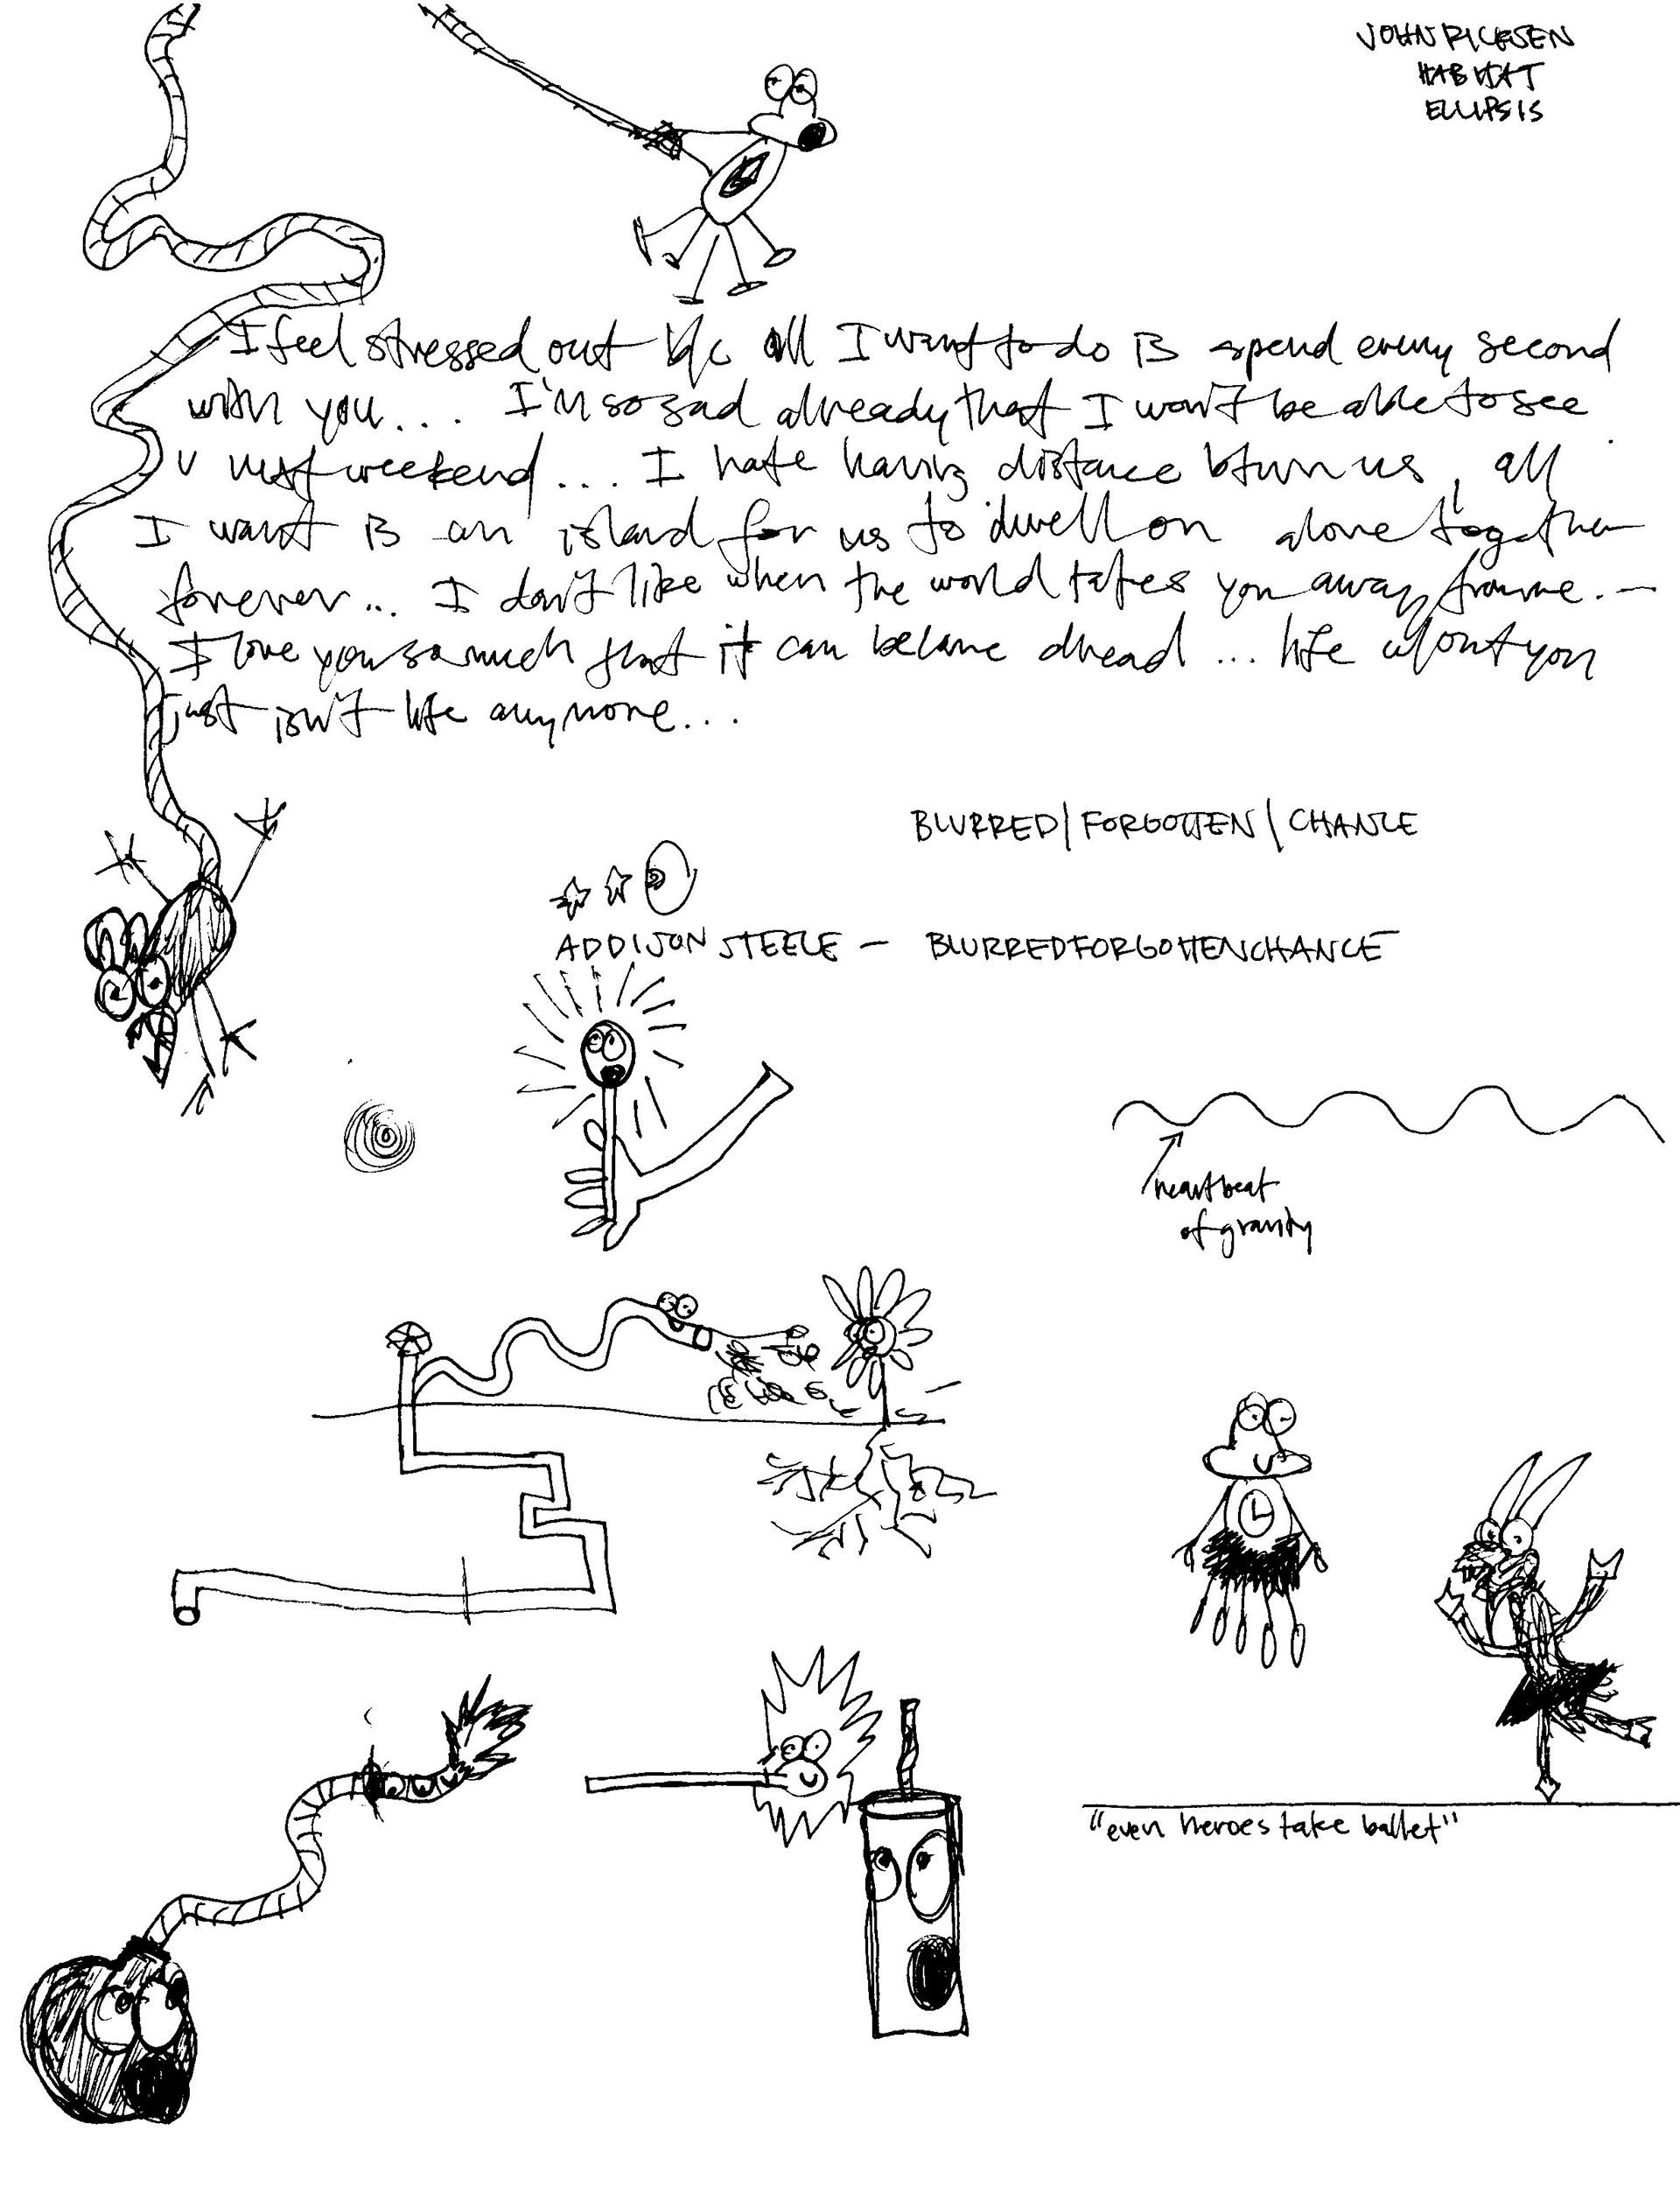 JOHN RICKSEN
HABITAT
ELLIPSIS
I feel stressed out b/c all I want to do is spend every second
with you... I'm so sad already that I won't be able to see
u next weekend... I hate having distance btwn us, all
I want is an island for us to dwell on alone together
forever... I don't like when the world takes you away from me..
I love you so much that it can become dread... life w/out you
just isn't life anymore...
BLURRED/FORGOTTEN/CHANCE
ADDISON STEELE — BLURREDFORGOTTENCHANCE
heartbeat
of gravity
"even heroes take ballet"